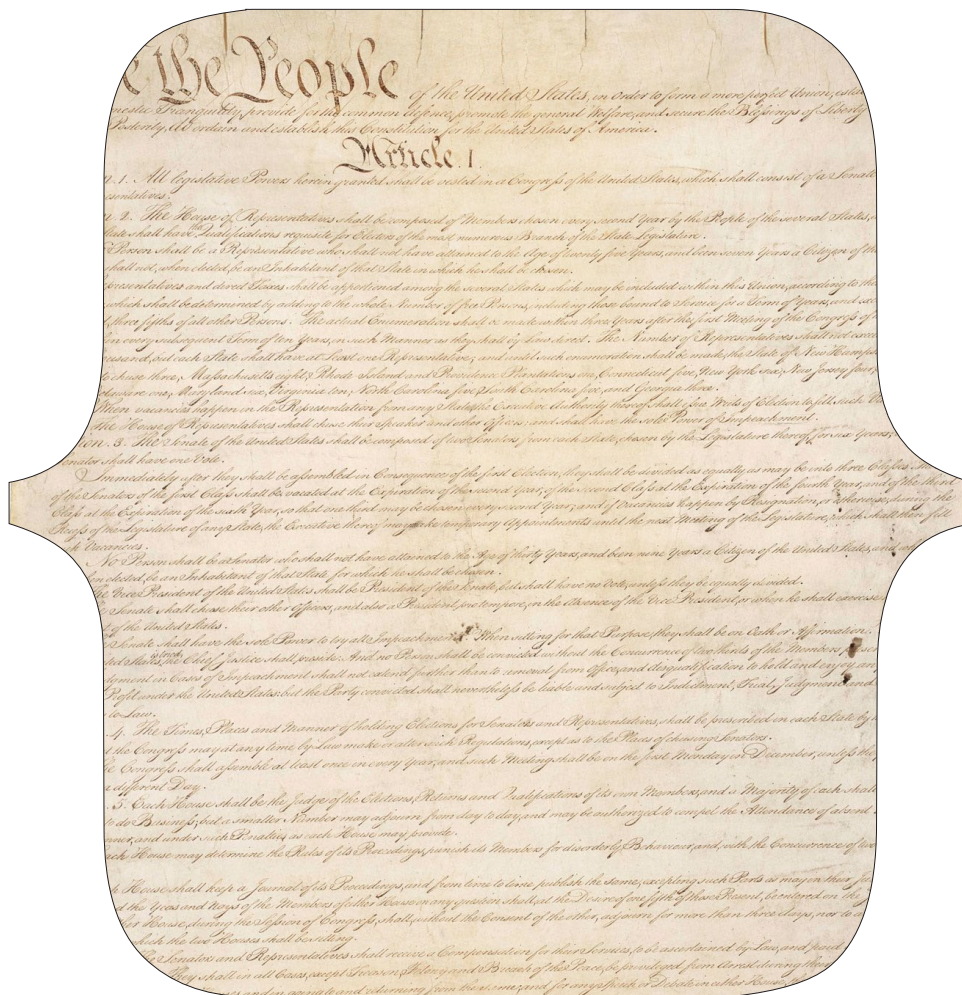 the People of the United States, in Order to form a more perfect Union,
Tranquility, provide for the common defence, promote the general Welfare, and secure the Blessings of Liberty
Posterity, do ordain and establish this Constitution for the United States of America.
Article. I.
1. All legislative Powers herein granted shall be vested in a Congress of the United States, which shall consist of a Senate
2. The House of Representatives shall be composed of Members chosen every second Year by the People of the several States,
shall have the Qualifications requisite for Electors of the most numerous Branch of the State Legislature.
Person shall be a Representative who shall not have attained to the Age of twenty five Years, and been seven Years a Citizen of the
shall not, when elected, be an Inhabitant of that State in which he shall be chosen.
and direct Taxes shall be apportioned among the several States which may be included within this Union, according to
which shall be determined by adding to the whole Number of free Persons, including those bound to Service for a Term of Years, and
three fifths of all other Persons. The actual Enumeration shall be made within three Years after the first Meeting of the Congress of
every subsequent Term of ten Years, in such Manner as they shall by Law direct. The Number of Representatives shall not
but each State shall have at Least one Representative; and until such enumeration shall be made, the State of New
chuse three, Massachusetts eight, Rhode Island and Providence Plantations one, Connecticut five, New York six, New Jersey four,
one, Maryland six, Virginia ten, North Carolina five, South Carolina five, and Georgia three.
When vacancies happen in the Representation from any State, the Executive Authority thereof shall issue Writs of Election to fill such
The House of Representatives shall chuse their Speaker and other Officers; and shall have the sole Power of Impeachment.
3. The Senate of the United States shall be composed of two Senators from each State, chosen by the Legislature thereof, for six Years;
shall have one Vote.
Immediately after they shall be assembled in Consequence of the first Election, they shall be divided as equally as may be into three Classes. The
of the Senators of the first Class shall be vacated at the Expiration of the second Year, of the second Class at the Expiration of the fourth Year, and of the third
Class at the Expiration of the sixth Year, so that one third may be chosen every second Year; and if Vacancies happen by Resignation, or otherwise, during the
Recess of the Legislature of any State, the Executive thereof may make temporary Appointments until the next Meeting of the Legislature, which shall then fill
Vacancies.
No Person shall be a Senator who shall not have attained to the Age of thirty Years, and been nine Years a Citizen of the United States, and
elected, be an Inhabitant of that State for which he shall be chosen.
Vice President of the United States shall be President of the Senate, but shall have no Vote, unless they be equally divided.
Senate shall chuse their other Officers, and also a President pro tempore, in the Absence of the Vice President, or when he shall exercise
of the United States.
Senate shall have the sole Power to try all Impeachments. When sitting for that Purpose, they shall be on Oath or Affirmation.
the Chief Justice shall preside: And no Person shall be convicted without the Concurrence of two thirds of the Members
in Cases of Impeachment shall not extend further than to removal from Office, and disqualification to hold and enjoy
Profit under the United States: but the Party convicted shall nevertheless be liable and subject to Indictment, Trial, Judgment and
to Law.
4. The Times, Places and Manner of holding Elections for Senators and Representatives, shall be prescribed in each State by
the Congress may at any time by Law make or alter such Regulations, except as to the Places of chusing Senators.
Congress shall assemble at least once in every Year, and such Meeting shall be on the first Monday in December, unless
different Day.
5. Each House shall be the Judge of the Elections, Returns and Qualifications of its own Members, and a Majority of each shall
to do Business; but a smaller Number may adjourn from day to day, and may be authorized to compel the Attendance of absent
and under such Penalties as each House may provide.
House may determine the Rules of its Proceedings, punish its Members for disorderly Behaviour, and, with the Concurrence of two
House shall keep a Journal of its Proceedings, and from time to time publish the same, excepting such Parts as may in their
the Yeas and Nays of the Members of either House on any question shall, at the Desire of one fifth of those Present, be entered on the
House, during the Session of Congress, shall, without the Consent of the other, adjourn for more than three days, nor to
which the two Houses shall be sitting.
The Senators and Representatives shall receive a Compensation for their Services, to be ascertained by Law, and paid
They shall in all Cases, except Treason, Felony and Breach of the Peace, be privileged from Arrest during their
and in going to and returning from the same; and for any Speech or Debate in either House,